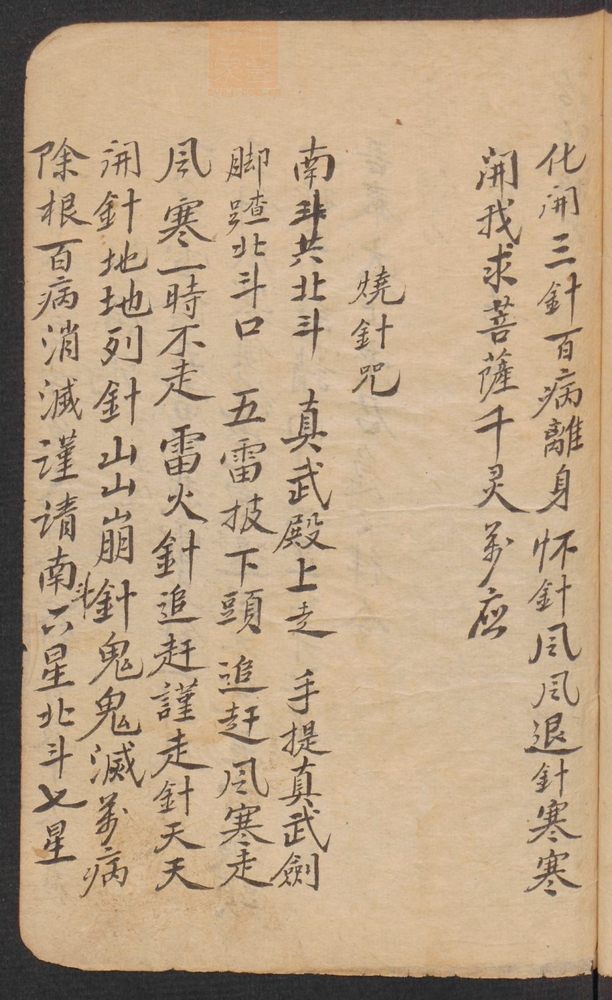 化開三針百病離身 怀針風風退針寒寒
開我求菩薩千灵萬应
燒針咒
南斗共北斗 真武殿上走 手提真武劍
脚踏北斗口 五雷披下頭 追赶風寒走
風寒一時不走 雷火針追赶謹走針天天
開針地地列針山山崩針鬼鬼滅萬病
除根百病消滅謹請南斗六星北斗七星